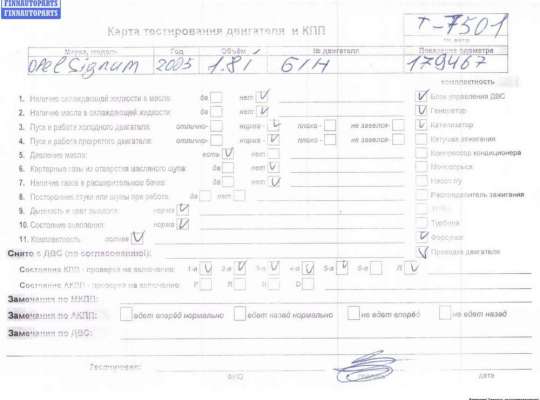 FINNAUTOPARTS
FINNAUTOPARTS
Карта тестирования двигателя и КПП
Т-7501
№ авто
Марка, модель Год Объём № двигателя Показание одометра
Opel Signum 2005 1.8i Б/Н 179467
комплектность
1. Наличие охлаждающей жидкости в масле: да нет Блок управления ДВС
2. Наличие масла в охлаждающей жидкости: да нет Генератор
3. Пуск и работа холодного двигателя: отлично- норма- плохо- не завелся- Катализатор
4. Пуск и работа прогретого двигателя: отлично- норма- плохо- не завелся- Катушка зажигания
5. Давление масла: есть нет Компрессор кондиционера
6. Картерные газы из отверстия масляного щупа: да нет
7. Наличие газов в расширительном бачке: да нет
8. Посторонние стуки или шумы при работе: да нет Распределитель зажигания
9. Дымность и цвет выхлопа: норма
10. Состояние сцепления: норма Турбина
11. Компактность: полная Форсунки
Снято с ДВС (по согласованию): Проводка двигателя
Состояние КПП - проверка на включение: 1-я 2-я 3-я 4-я 5-я 6-я R
Состояние АКПП - проверка на включение: P R N D
Замечания по МКПП:
Замечания по АКПП: едет вперёд нормально едет назад нормально не едет вперёд не едет назад
Замечания по ДВС:
Тестировал:
ФИО дата